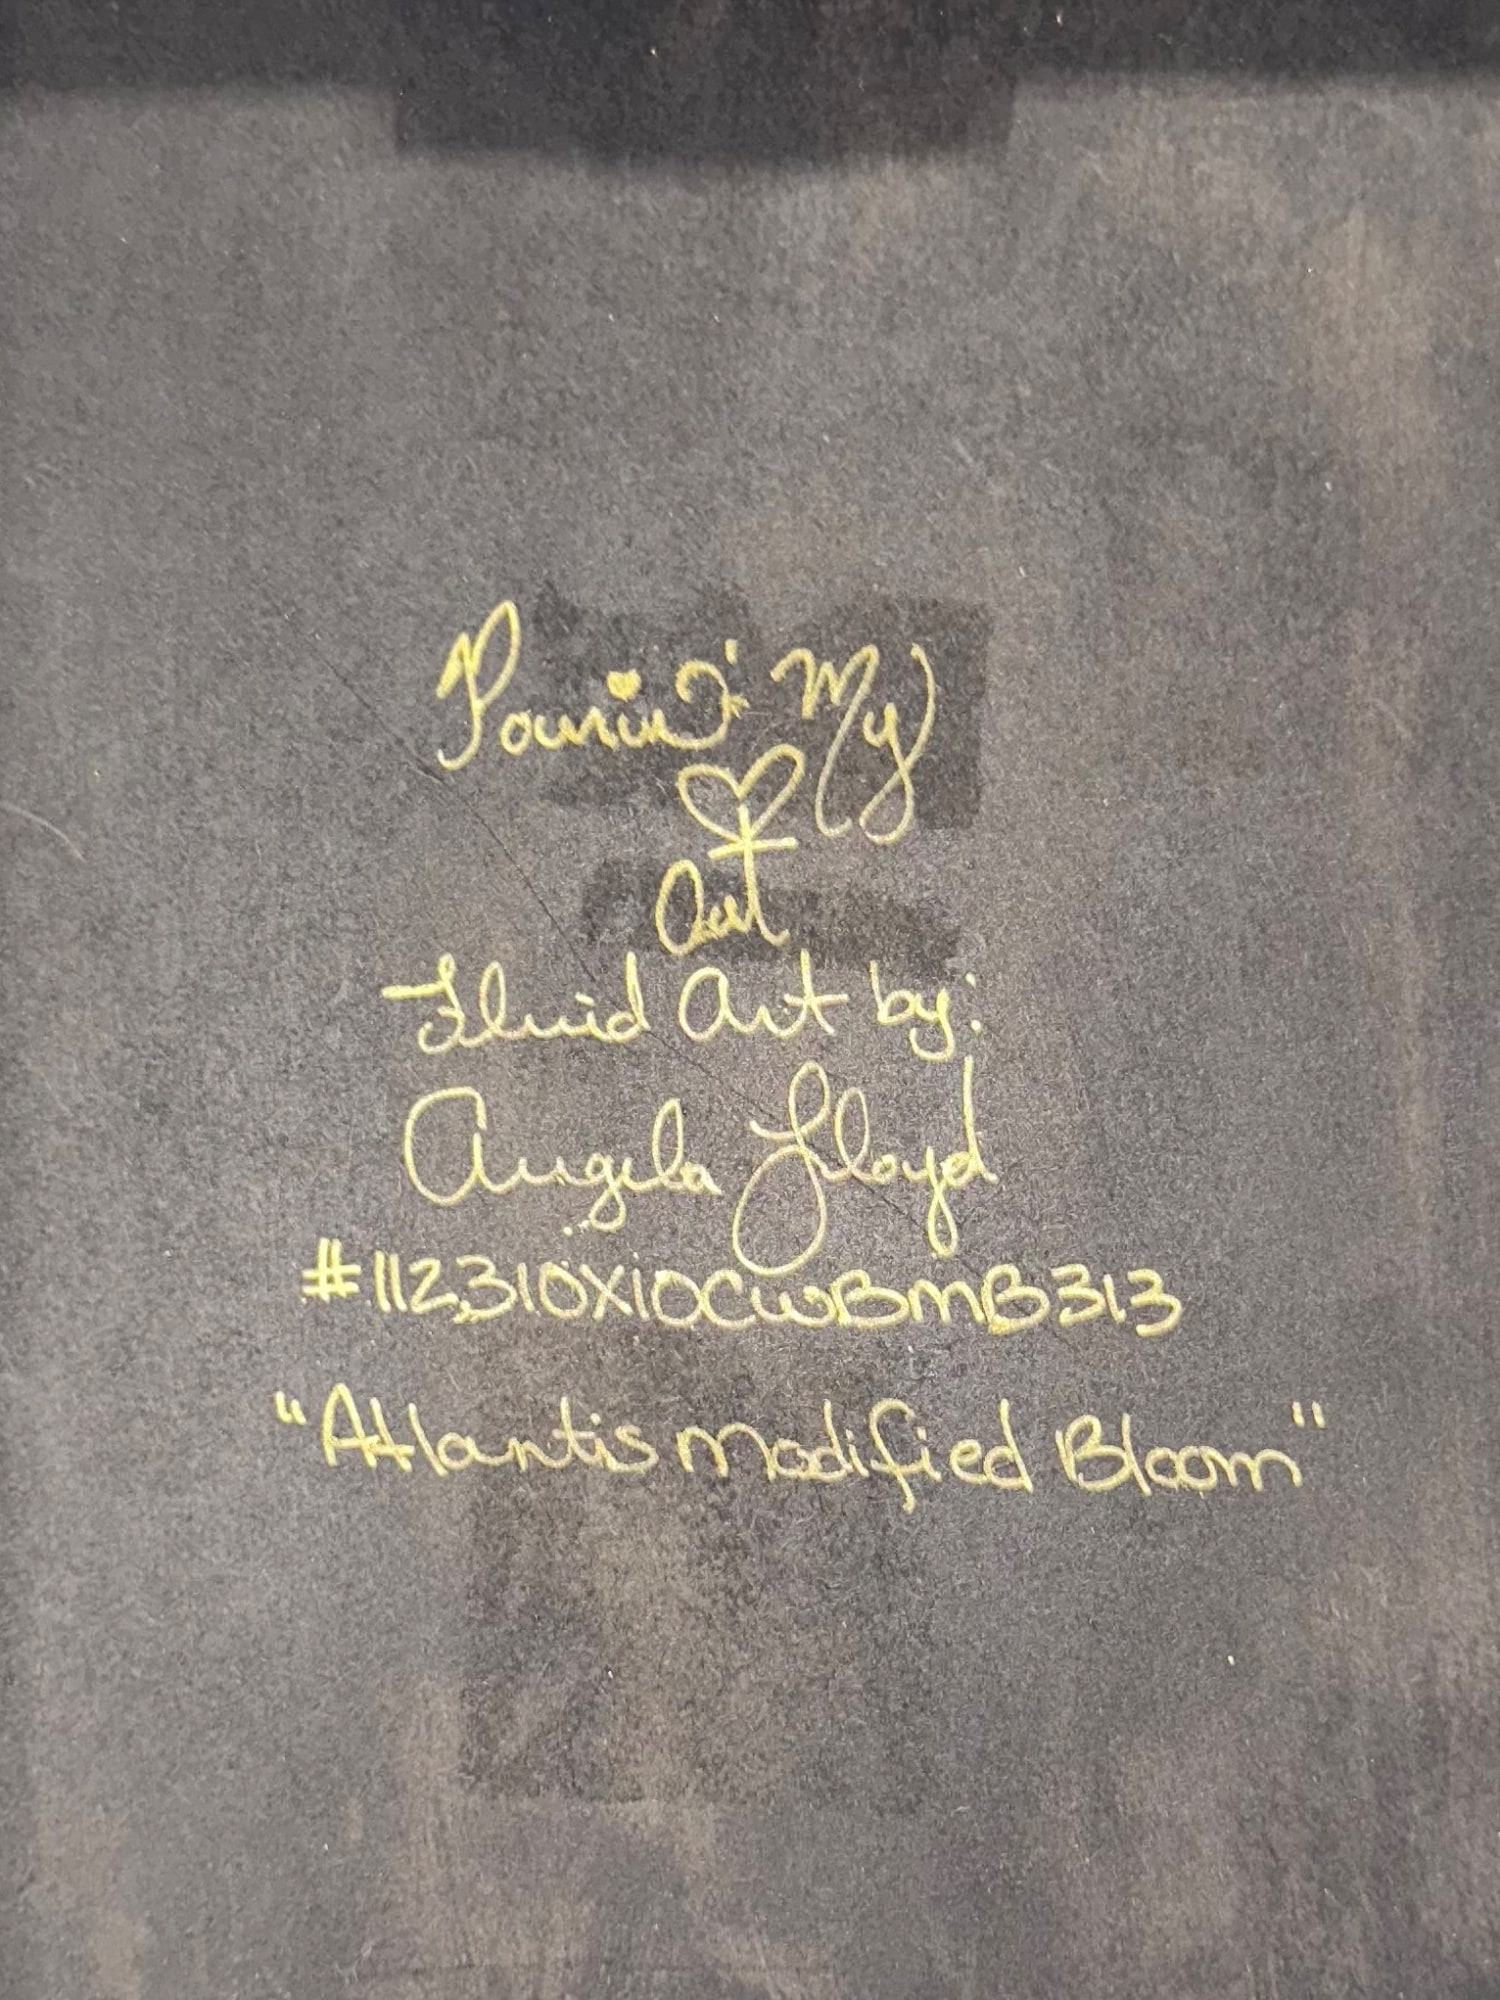 Pourin' My
♡
Art
Fluid Art by:
Angela Lloyd
#112310X10CWBMB313
"Atlantis Modified Bloom"